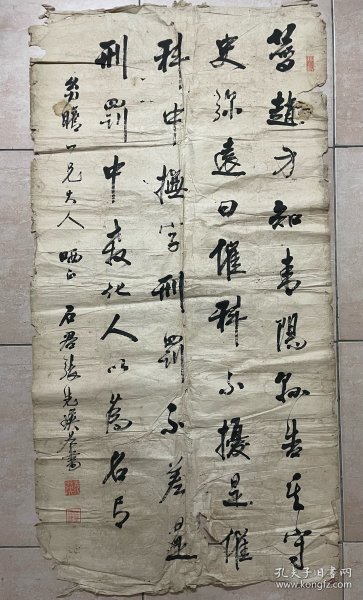 昔趙方知青陽縣告其守
史彌遠曰催科不擾是催
科中撫字刑罰不差是
刑罰中教化人以為名言
一兄大人 哂正
石君張
孔夫子旧书网
www.kongfz.com